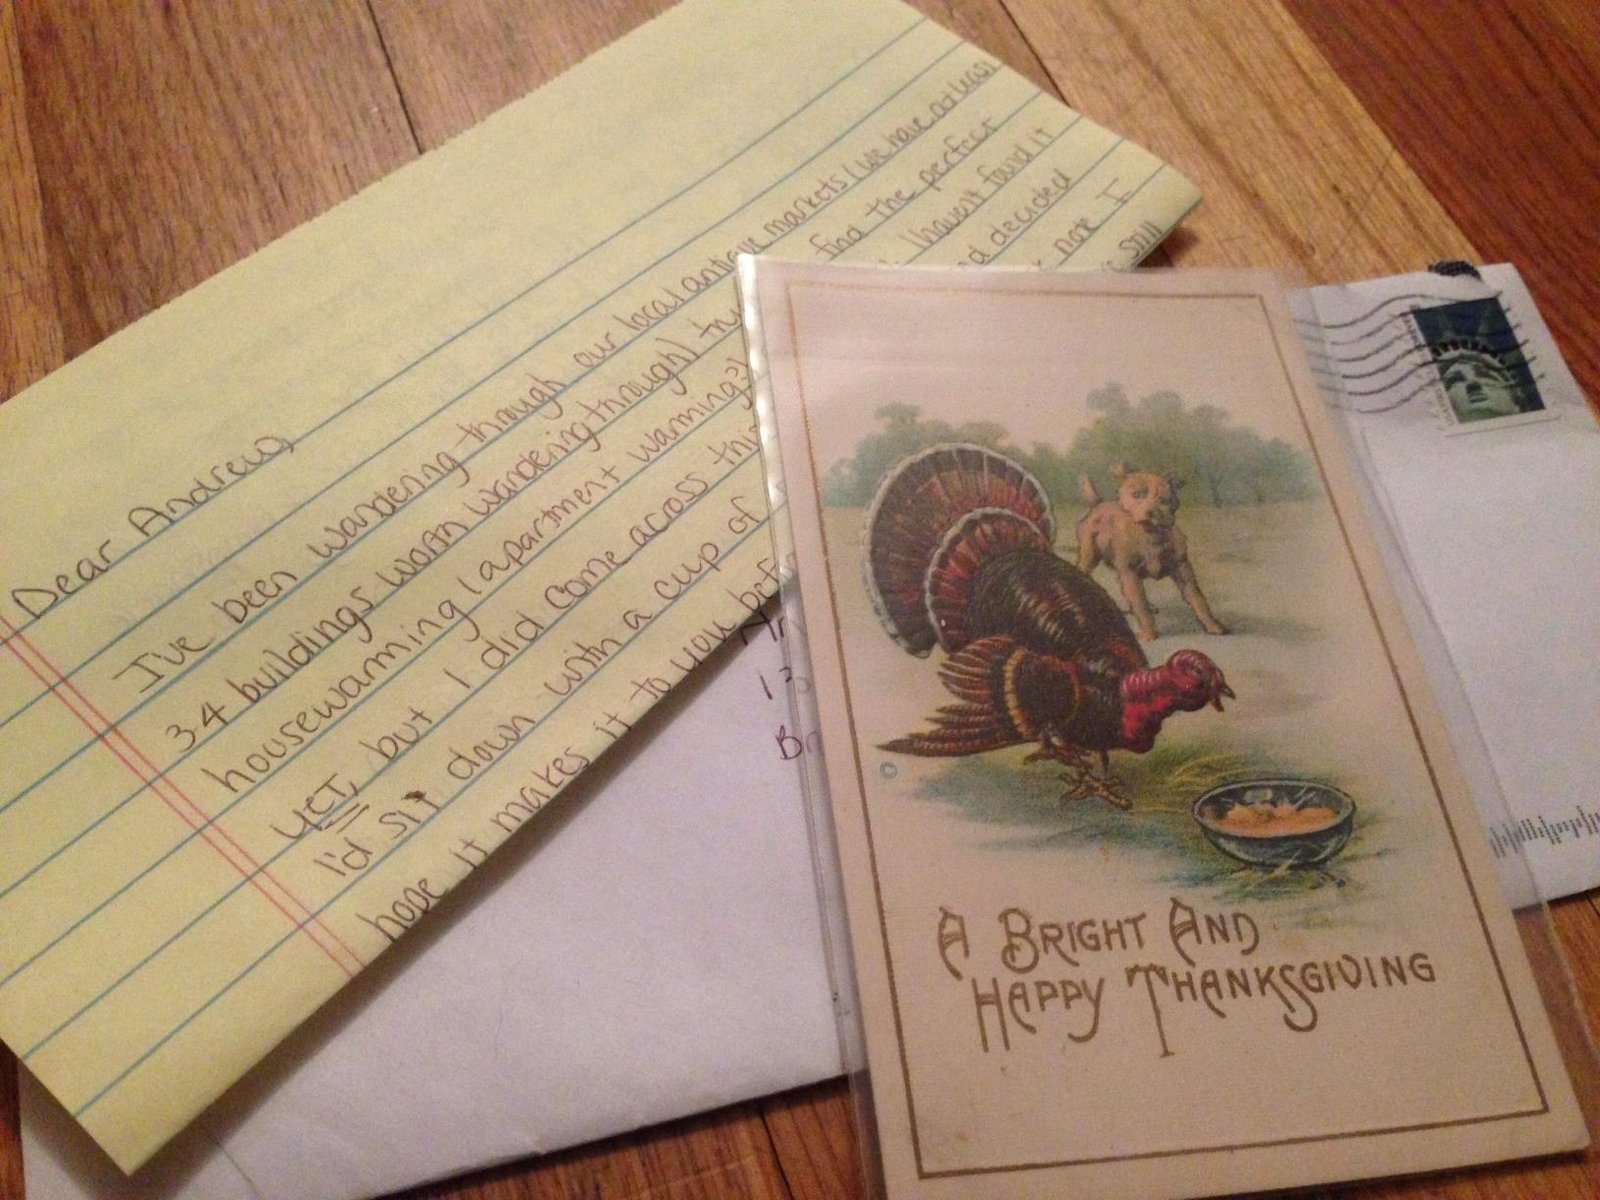 Dear Andrew,
I've been wandering through our local antique markets (we have at least
34 buildings worth wandering through) find the perfect
housewarming (apartment warming?) haven't found it
yet, but I did come across decided
I'd sit down with a cup of note I
hope it makes it to you still
A BRIGHT AND
HAPPY THANKSGIVING